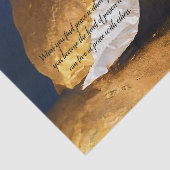 When you find peace within
you become the kind of person
can live at peace with others.